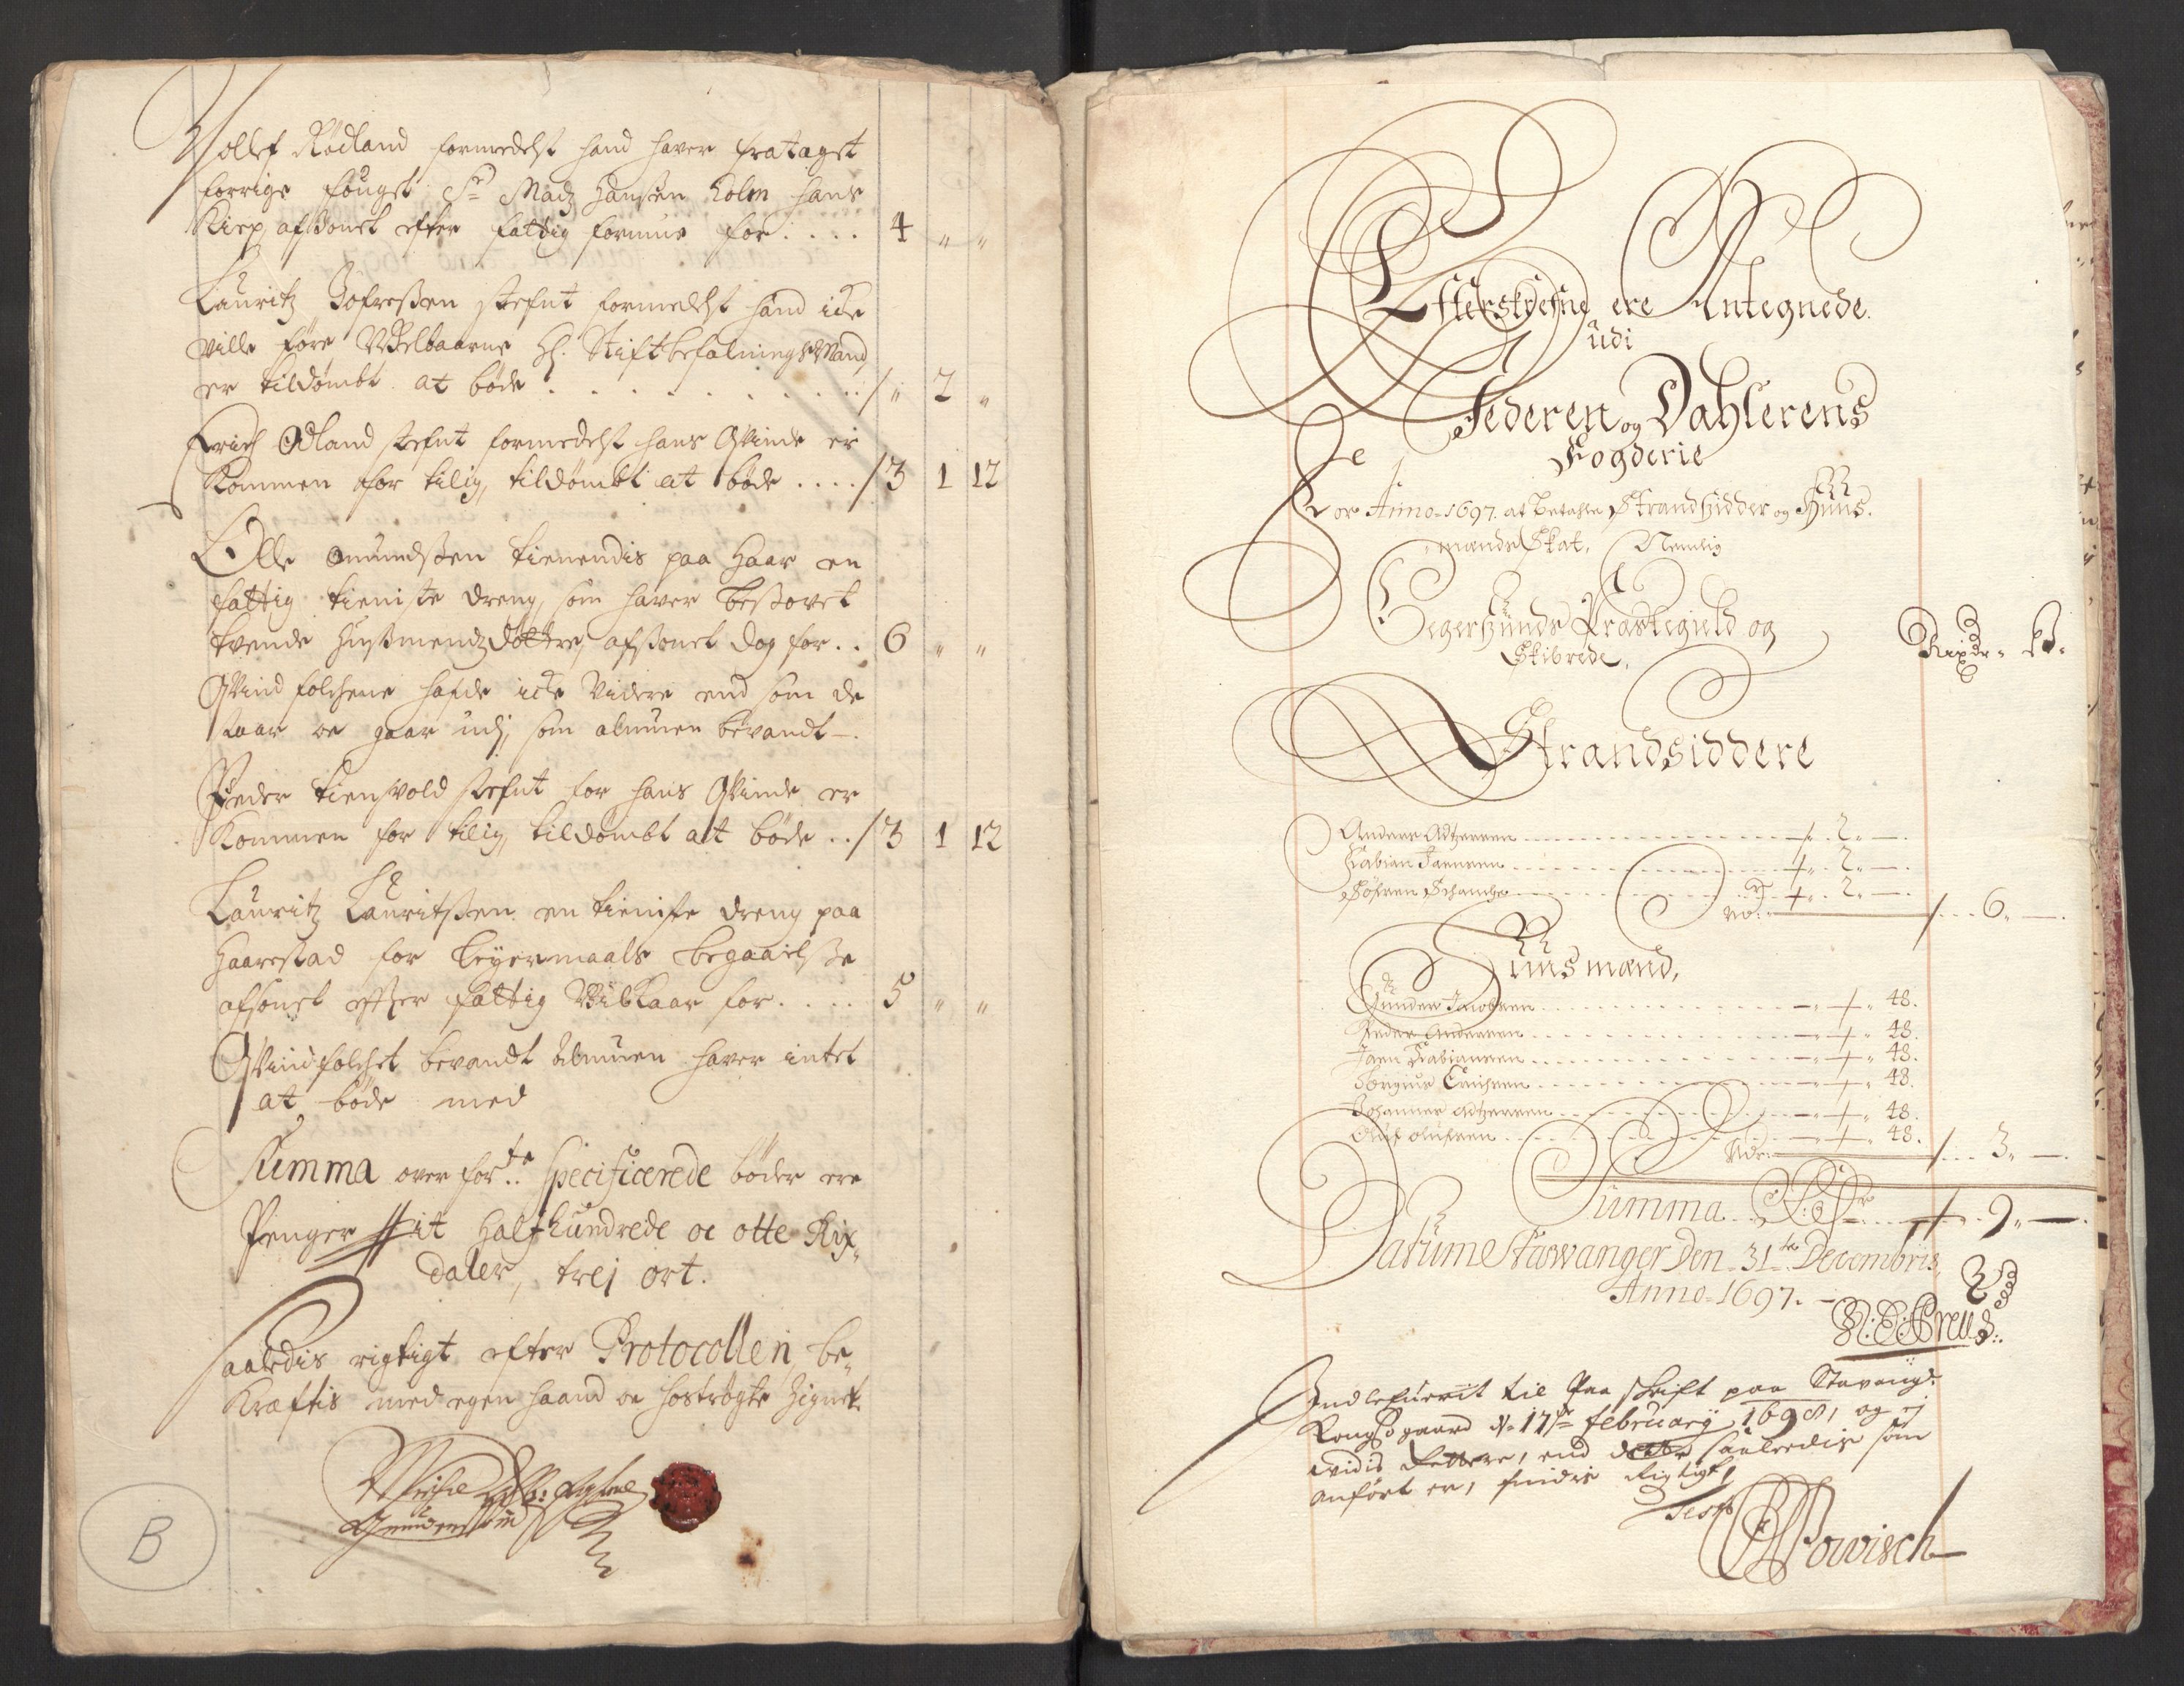 Rolef Rødland formedelst hand haver frataget
forrige fouget Sr Madz Hanßen Holm hans
Kiep, afsonet efter fattig formue for . . . . 4 " "
Lauritz Jofreßen stefnt formedelst hand icke
ville føre Welbaarne H. Stiftbefalningsmand
er tildømbt at bøde . . . . . . . . / " 2 "
Erich Ødland stefnt formedelst hans Qvinde er
kommen for tilig, tildømbt at bøde . . . . / 3 1 12
Olle Amundßen tienendis paa Haar en
fattig tieniste dreng, som haver besovet
tvende Husmendz døttre, afsonet dog for . . 6 " "
Qvindfolchene hafde icke videre end som de
staar oc gaar udj, som almuen bevandt
Peder Tiensvold stefnt for hans Qvinde er
kommen for tilig, tildømbt at bøde . . / 3 1 12
Lauritz Lauritßen en tieniste dreng paa
Haarestad for leyermaals begaaelse
afsonet efter fattig Vilkaar for . . . . 5 " "
Qvindfolchet bevandt Almuen haver intet
at bøde med
Summa over forte: specificerede bøder ere
Penger it halfhundrede oc otte Rix-
daler, trej ort.
Saaledis rigtigt efter Protocollen be-
kræftis med egen haand oc hostrøgte Zignet.
B
Efterskrefne ere Antegnede
udi
Jederen og Dahlerens
Fogderie
For Anno 1697 at betahle Strandsidder og Huus-
mands Skat, Nemlig
Egersunds Præstegield og
Skibrede,
Rixdr. ß.
Strandsiddere
Anders Adtzersen . . . . 2. —
Fabian Jaensen . . . . 2. —
Søfren Schanche . . . . 2. —
/ . . . 6. —
Huusmænd,
Gunder Jacobsen . . . . 48.
Peder Andersen . . . . 48.
Jaen Fabiansen . . . . 48.
Torgius Erichsen . . . . 48.
Johannes Adtzersen . . . . 48.
Oluf Olufsen . . . . 48.
/ . . . 3. —
Summa . . . . 9. —
Datum Stawanger Den 31te Decembris
Anno 1697.
Indlefuerit til Paaskrift paa Stavang:
Kongsgaard d. 17de februarij 1698, og ej
vidis rettere, end dette saaledis som
anført er, findis Rigtigt,
Test
Powisch